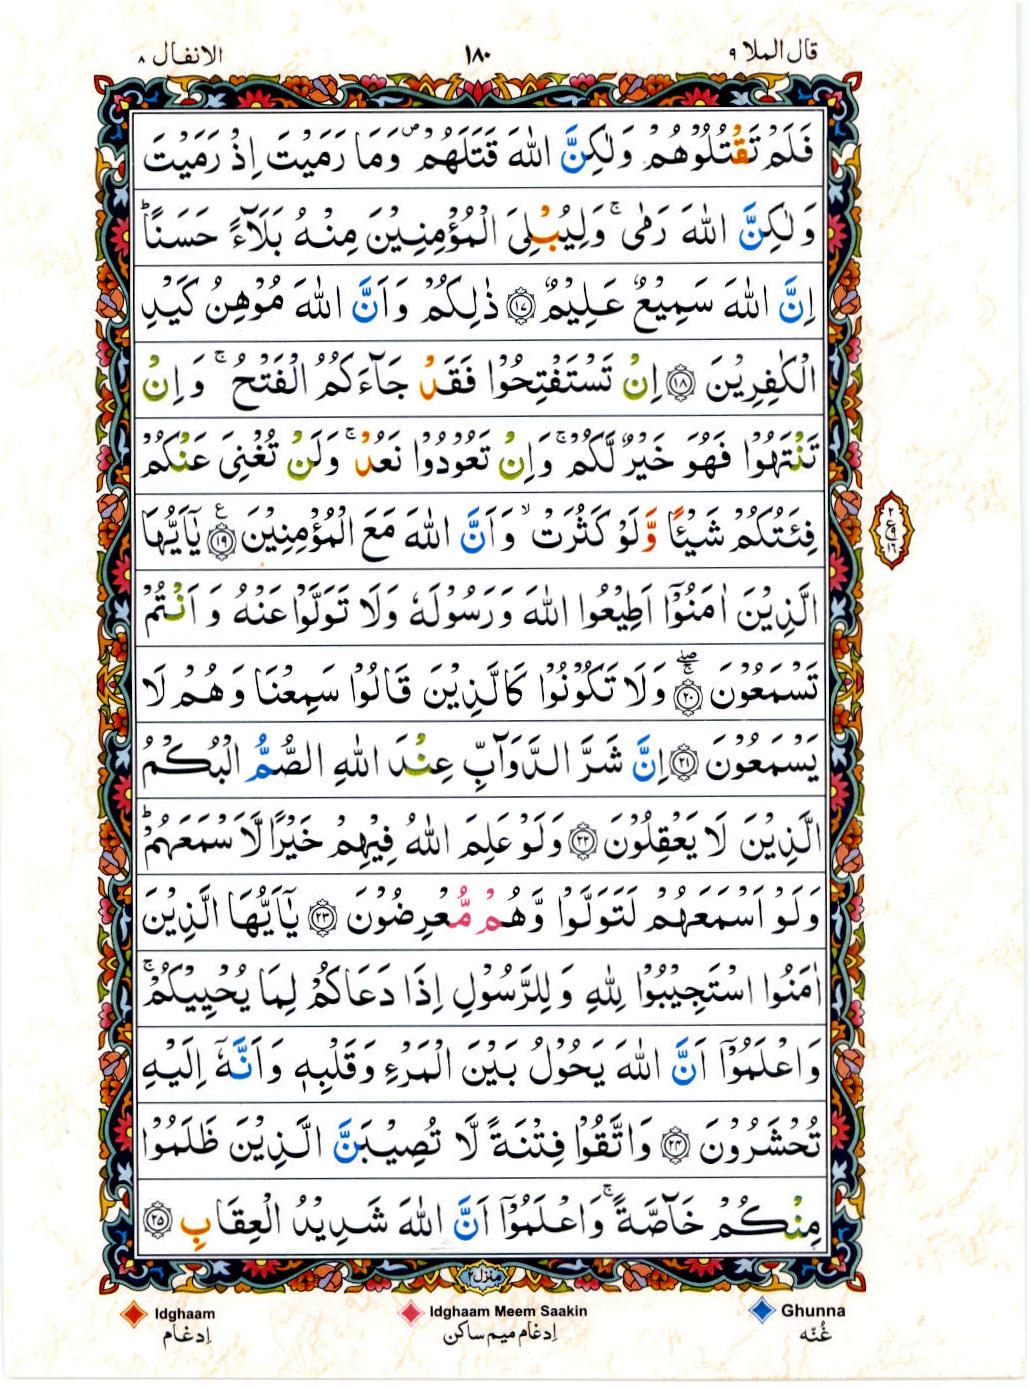 قال الملا ۹
۱۸۰
الانفال ۸
فَلَمْ تَقْتُلُوْهُمْ وَلٰكِنَّ اللّٰهَ قَتَلَهُمْ ۪ وَمَا رَمَيْتَ اِذْ رَمَيْتَ
وَلٰكِنَّ اللّٰهَ رَمٰى ۚ وَلِيُبْلِىَ الْمُؤْمِنِيْنَ مِنْهُ بَلَآءً حَسَنًا ؕ
اِنَّ اللّٰهَ سَمِيْعٌ عَلِيْمٌ ﴿۱۷﴾ ذٰلِكُمْ وَاَنَّ اللّٰهَ مُوْهِنُ كَيْدِ
الْكٰفِرِيْنَ ﴿۱۸﴾ اِنْ تَسْتَفْتِحُوْا فَقَدْ جَآءَكُمُ الْفَتْحُ ۚ وَاِنْ
تَنْتَهُوْا فَهُوَ خَيْرٌ لَّكُمْ ۚ وَاِنْ تَعُوْدُوْا نَعُدْ ۚ وَلَنْ تُغْنِىَ عَنْكُمْ
فِئَتُكُمْ شَيْئًا وَّلَوْ كَثُرَتْ ۙ وَاَنَّ اللّٰهَ مَعَ الْمُؤْمِنِيْنَ ﴿۱۹﴾ ع يٰۤاَيُّهَا
۲
ع
۱٦
الَّذِيْنَ اٰمَنُوْۤا اَطِيْعُوا اللّٰهَ وَرَسُوْلَهٗ وَلَا تَوَلَّوْا عَنْهُ وَاَنْتُمْ
تَسْمَعُوْنَ ﴿۲۰﴾ ۚۖ وَلَا تَكُوْنُوْا كَالَّذِيْنَ قَالُوْا سَمِعْنَا وَهُمْ لَا
يَسْمَعُوْنَ ﴿۲۱﴾ اِنَّ شَرَّ الدَّوَآبِّ عِنْدَ اللّٰهِ الصُّمُّ الْبُكْمُ
الَّذِيْنَ لَا يَعْقِلُوْنَ ﴿۲۲﴾ وَلَوْ عَلِمَ اللّٰهُ فِيْهِمْ خَيْرًا لَّاَسْمَعَهُمْ ؕ
وَلَوْ اَسْمَعَهُمْ لَتَوَلَّوْا وَّهُمْ مُّعْرِضُوْنَ ﴿۲۳﴾ يٰۤاَيُّهَا الَّذِيْنَ
اٰمَنُوا اسْتَجِيْبُوْا لِلّٰهِ وَلِلرَّسُوْلِ اِذَا دَعَاكُمْ لِمَا يُحْيِيْكُمْ ۚ
وَاعْلَمُوْۤا اَنَّ اللّٰهَ يَحُوْلُ بَيْنَ الْمَرْءِ وَقَلْبِهٖ وَاَنَّهٗۤ اِلَيْهِ
تُحْشَرُوْنَ ﴿۲۴﴾ وَاتَّقُوْا فِتْنَةً لَّا تُصِيْبَنَّ الَّذِيْنَ ظَلَمُوْا
مِنْكُمْ خَآصَّةً ۚ وَاعْلَمُوْۤا اَنَّ اللّٰهَ شَدِيْدُ الْعِقَابِ ﴿۲۵﴾
منزل ۲
Idghaam
Idghaam Meem Saakin
Ghunna
اِدغام
اِدغام میم ساکن
غُنّه